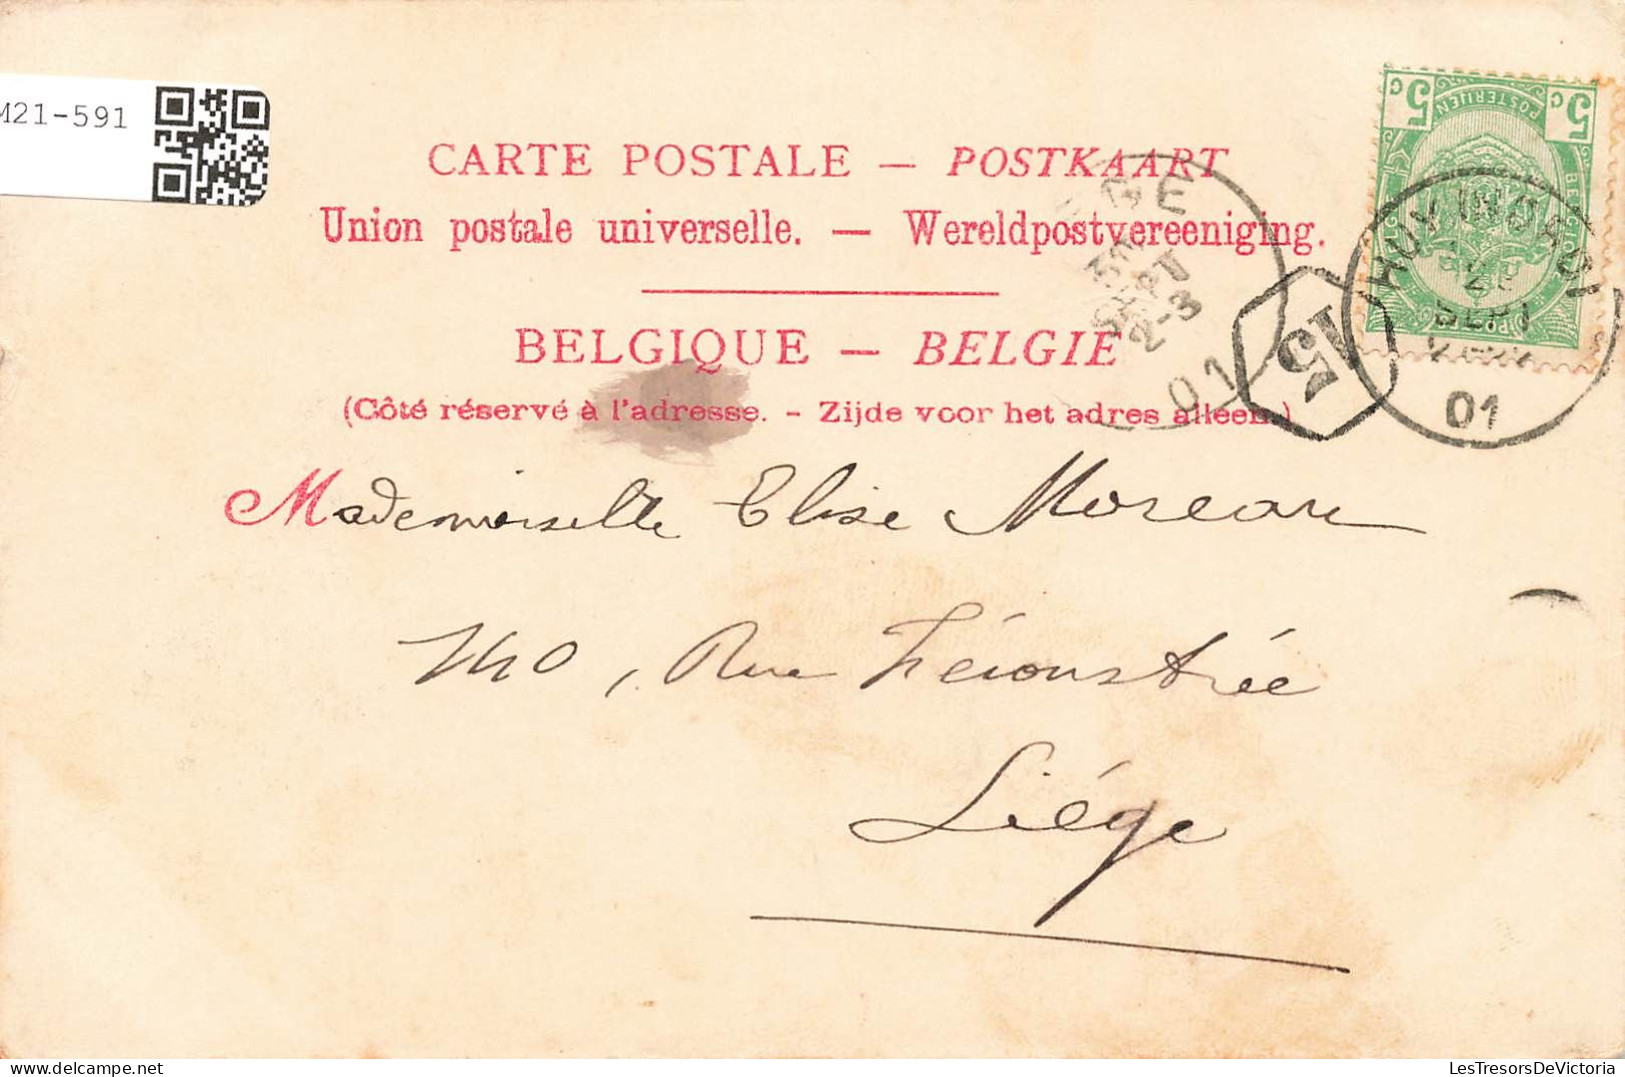 M21-591
CARTE POSTALE — POSTKAART
Union postale universelle. — Wereldpostvereeniging.
BELGIQUE — BELGIË
(Côté réservé à l'adresse. - Zijde voor het adres alleen.)
Mademoiselle Elise Moreau
140, Rue Féronstrée
Liége
5 c 5 c
POSTERIJEN
BELGIQUE
HUY (NORD)
SEPT
01
GE
SEPT
2-3
01
15
LesTresorsDeVictoria